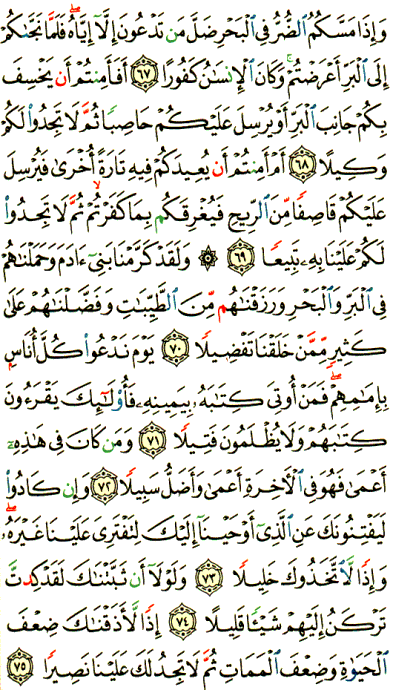 وَإِذَا مَسَّكُمُ ٱلضُّرُّ فِي ٱلْبَحْرِ ضَلَّ مَن تَدْعُونَ إِلَّآ إِيَّاهُ ۖ فَلَمَّا نَجَّىٰكُمْ
إِلَى ٱلْبَرِّ أَعْرَضْتُمْ ۚ وَكَانَ ٱلْإِنسَٰنُ كَفُورًا ٦٧ أَفَأَمِنتُمْ أَن يَخْسِفَ
بِكُمْ جَانِبَ ٱلْبَرِّ أَوْ يُرْسِلَ عَلَيْكُمْ حَاصِبًا ثُمَّ لَا تَجِدُوا۟ لَكُمْ
وَكِيلًا ٦٨ أَمْ أَمِنتُمْ أَن يُعِيدَكُمْ فِيهِ تَارَةً أُخْرَىٰ فَيُرْسِلَ
عَلَيْكُمْ قَاصِفًا مِّنَ ٱلرِّيحِ فَيُغْرِقَكُم بِمَا كَفَرْتُمْ ۙ ثُمَّ لَا تَجِدُوا۟
لَكُمْ عَلَيْنَا بِهِۦ تَبِيعًا ٦٩ ۞ وَلَقَدْ كَرَّمْنَا بَنِىٓ ءَادَمَ وَحَمَلْنَٰهُمْ
فِي ٱلْبَرِّ وَٱلْبَحْرِ وَرَزَقْنَٰهُم مِّنَ ٱلطَّيِّبَٰتِ وَفَضَّلْنَٰهُمْ عَلَىٰ
كَثِيرٍ مِّمَّنْ خَلَقْنَا تَفْضِيلًا ٧٠ يَوْمَ نَدْعُوا۟ كُلَّ أُنَاسٍۭ
بِإِمَٰمِهِمْ ۖ فَمَنْ أُوتِىَ كِتَٰبَهُۥ بِيَمِينِهِۦ فَأُو۟لَٰٓئِكَ يَقْرَءُونَ
كِتَٰبَهُمْ وَلَا يُظْلَمُونَ فَتِيلًا ٧١ وَمَن كَانَ فِى هَٰذِهِۦٓ
أَعْمَىٰ فَهُوَ فِي ٱلْءَاخِرَةِ أَعْمَىٰ وَأَضَلُّ سَبِيلًا ٧٢ وَإِن كَادُوا۟
لَيَفْتِنُونَكَ عَنِ ٱلَّذِىٓ أَوْحَيْنَآ إِلَيْكَ لِتَفْتَرِىَ عَلَيْنَا غَيْرَهُۥ ۖ
وَإِذًا لَّٱتَّخَذُوكَ خَلِيلًا ٧٣ وَلَوْلَآ أَن ثَبَّتْنَٰكَ لَقَدْ كِدتَّ
تَرْكَنُ إِلَيْهِمْ شَيْـًٔا قَلِيلًا ٧٤ إِذًا لَّأَذَقْنَٰكَ ضِعْفَ
ٱلْحَيَوٰةِ وَضِعْفَ ٱلْمَمَاتِ ثُمَّ لَا تَجِدُ لَكَ عَلَيْنَا نَصِيرًا ٧٥